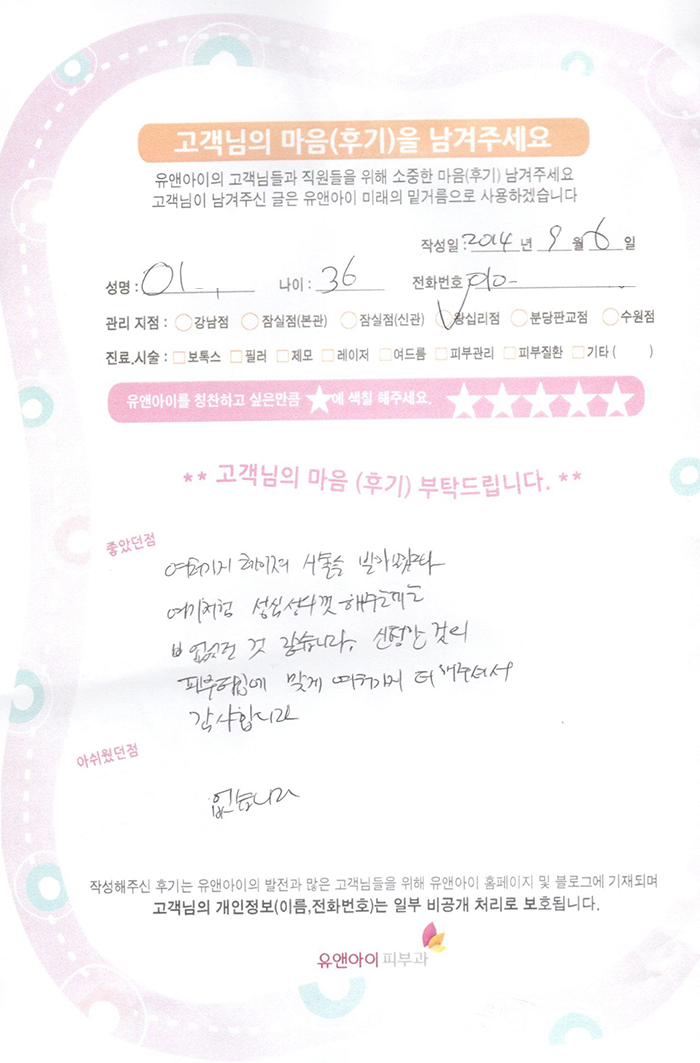 고객님의 마음(후기)을 남겨주세요
유앤아이의 고객님들과 직원들을 위해 소중한 마음(후기) 남겨주세요
고객님이 남겨주신 글은 유앤아이 미래의 밑거름으로 사용하겠습니다
작성일 : 2014 년 9 월 6 일
성명 : 이 나이 : 36 전화번호 : 010-
관리 지점 : 강남점 잠실점(본관) 잠실점(신관) 왕십리점 분당판교점 수원점
진료.시술 : 보톡스 필러 제모 레이저 여드름 피부관리 피부질환 기타 ( )
유앤아이를 칭찬하고 싶은만큼 ★에 색칠 해주세요. ★★★★★
** 고객님의 마음 (후기) 부탁드립니다. **
좋았던점
여러가지 레이저 시술을 받아봤지만
여기처럼 성심성의껏 해주는데는
없었던 것 같습니다.
피부타입에 맞게 여러가지 더 해주셔서
감사합니다
아쉬웠던점
없습니다
작성해주신 후기는 유앤아이의 발전과 많은 고객님들을 위해 유앤아이 홈페이지 및 블로그에 기재되며
고객님의 개인정보(이름,전화번호)는 일부 비공개 처리로 보호됩니다.
유앤아이 피부과